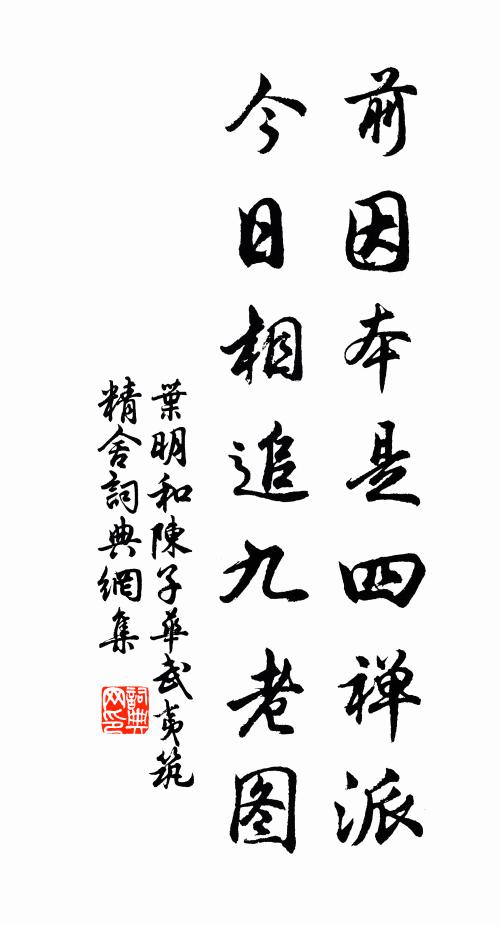 前因本是四禅派
今日相追九老图
葉明和陳子華武夷筑
精舍詞典網集
詞典网印